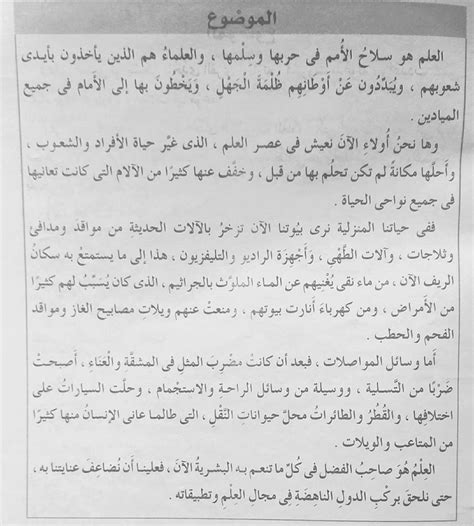 الموضوع
العلم هو سلاحُ الأُمم فى حربها وسِلْمها ، والعلماءُ هم الذين يأخذون بأيدى
شعوبهم ، ويُبَدِّدُون عَنْ أوْطانِهم ظُلْمَةَ الجَهْلِ ، وَيَخْطُونَ بها إلى الأمام فى جميع
الميادين .
وها نحنُ أُولاء الآنَ نعيش فى عصر العلم ، الذى غيَّر حياة الأفراد والشعوب ،
وأَحلَّها مكانةً لم تكن تحلُم بها من قبل ، وخفَّف عنها كثيرًا من الآلام التى كانت تعانيها
فى جميع نواحى الحياة .
ففى حياتنا المنزلية نرى بيُوتنا الآن تزخرُ بالآلات الحديثةِ من مواقدَ ومدافئَ
وثلاجات ، وآلات الطَّهْى ، وَأَجْهزة الراديو والتليفزيون ، هذا إلى ما يستمتعُ به سكانُ
الريف الآن ، من ماء نقى يُغْنيهم عن الماء الملوَّث بالجراثيم ، الذى كان يُسَبِّبُ لهم كثيرًا
من الأَمراض ، ومن كهرباءَ أنارت بيوتهم ، ومنعتْ عنهم ويلاتِ مصابيح الغاز ومواقد
الفحم والحطب .
أما وسائل المواصلات ، فبعد أن كانتْ مضْربَ المثل فى المشقَّة والْعَنَاء ، أصبحتْ
ضَرْبًا من التَّسلية ، ووسيلة من وسائل الراحةِ والاستجْمام ، وحلَّت السياراتُ على
اختلافِها ، والقُطُرُ والطائراتُ محلَّ حيواناتِ النقْلِ ، التى طالمـا عانى الإنسانُ منها كثيرًا
من المتاعب والويلات .
العِلْمُ هُوَ صاحبُ الفضل فى كُلِّ ما تنعم به البشريةُ الآنَ ، فعلينا أن نُضاعِفَ عنايتنا به ،
حتى نلحق بركْبِ الدول الناهِضةِ فى مجال العلْم وتطبيقاته .